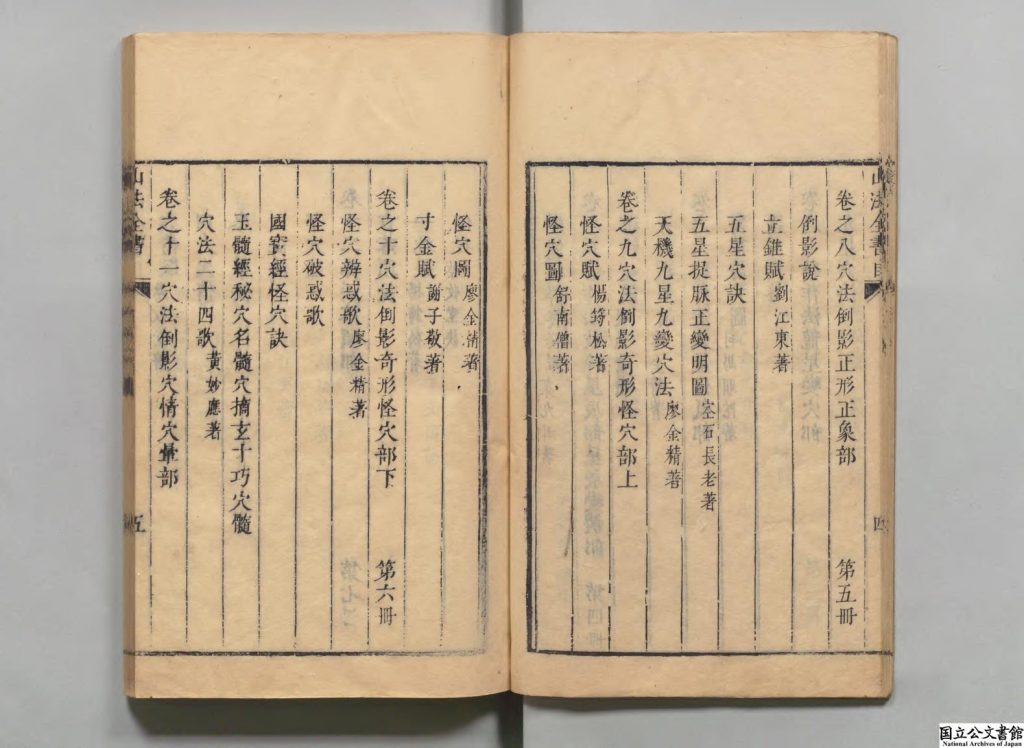 卷之八穴法倒影正形正象部 第五冊
倒影說
立錐賦劉江東著
五星穴訣
五星捉脉正變明圖
天機九星九變穴法廖金精著
卷之九穴法倒影奇形怪穴部上
怪穴賦楊筠松著
怪穴圖舒南僧著
四
怪穴圖廖金精著
寸金賦謝子敬著
卷之十穴法倒影奇形怪穴部下 第六冊
怪穴辨惑歌廖金精著
怪穴破惑歌
國寶經怪穴訣
玉髓經秘穴名髓穴摘玄十巧穴髓
穴法二十四歌黃妙應著
卷之十一穴法倒影穴情穴暈部
山法全書
五
国立公文書館
National Archives of Japan